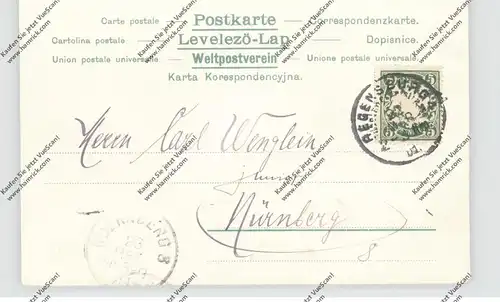 Carte postale Postkarte Correspondenzkarte.
Cartolina postale Levelező-Lap Dopisnice.
Union postale universelle. Weltpostverein Unione postale universale.
Karta Korespondencyjna.
Herrn Carl Wenglein
junr.
Nürnberg
8
REGENSBURG
NÜRNBERG 8
Kaufen Sie jetzt VueScan!
www.hamrick.com